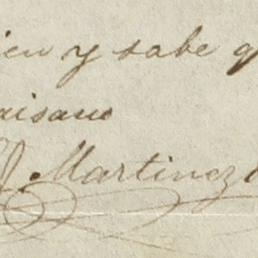 ien y sabe q
aisano
J. Martinez